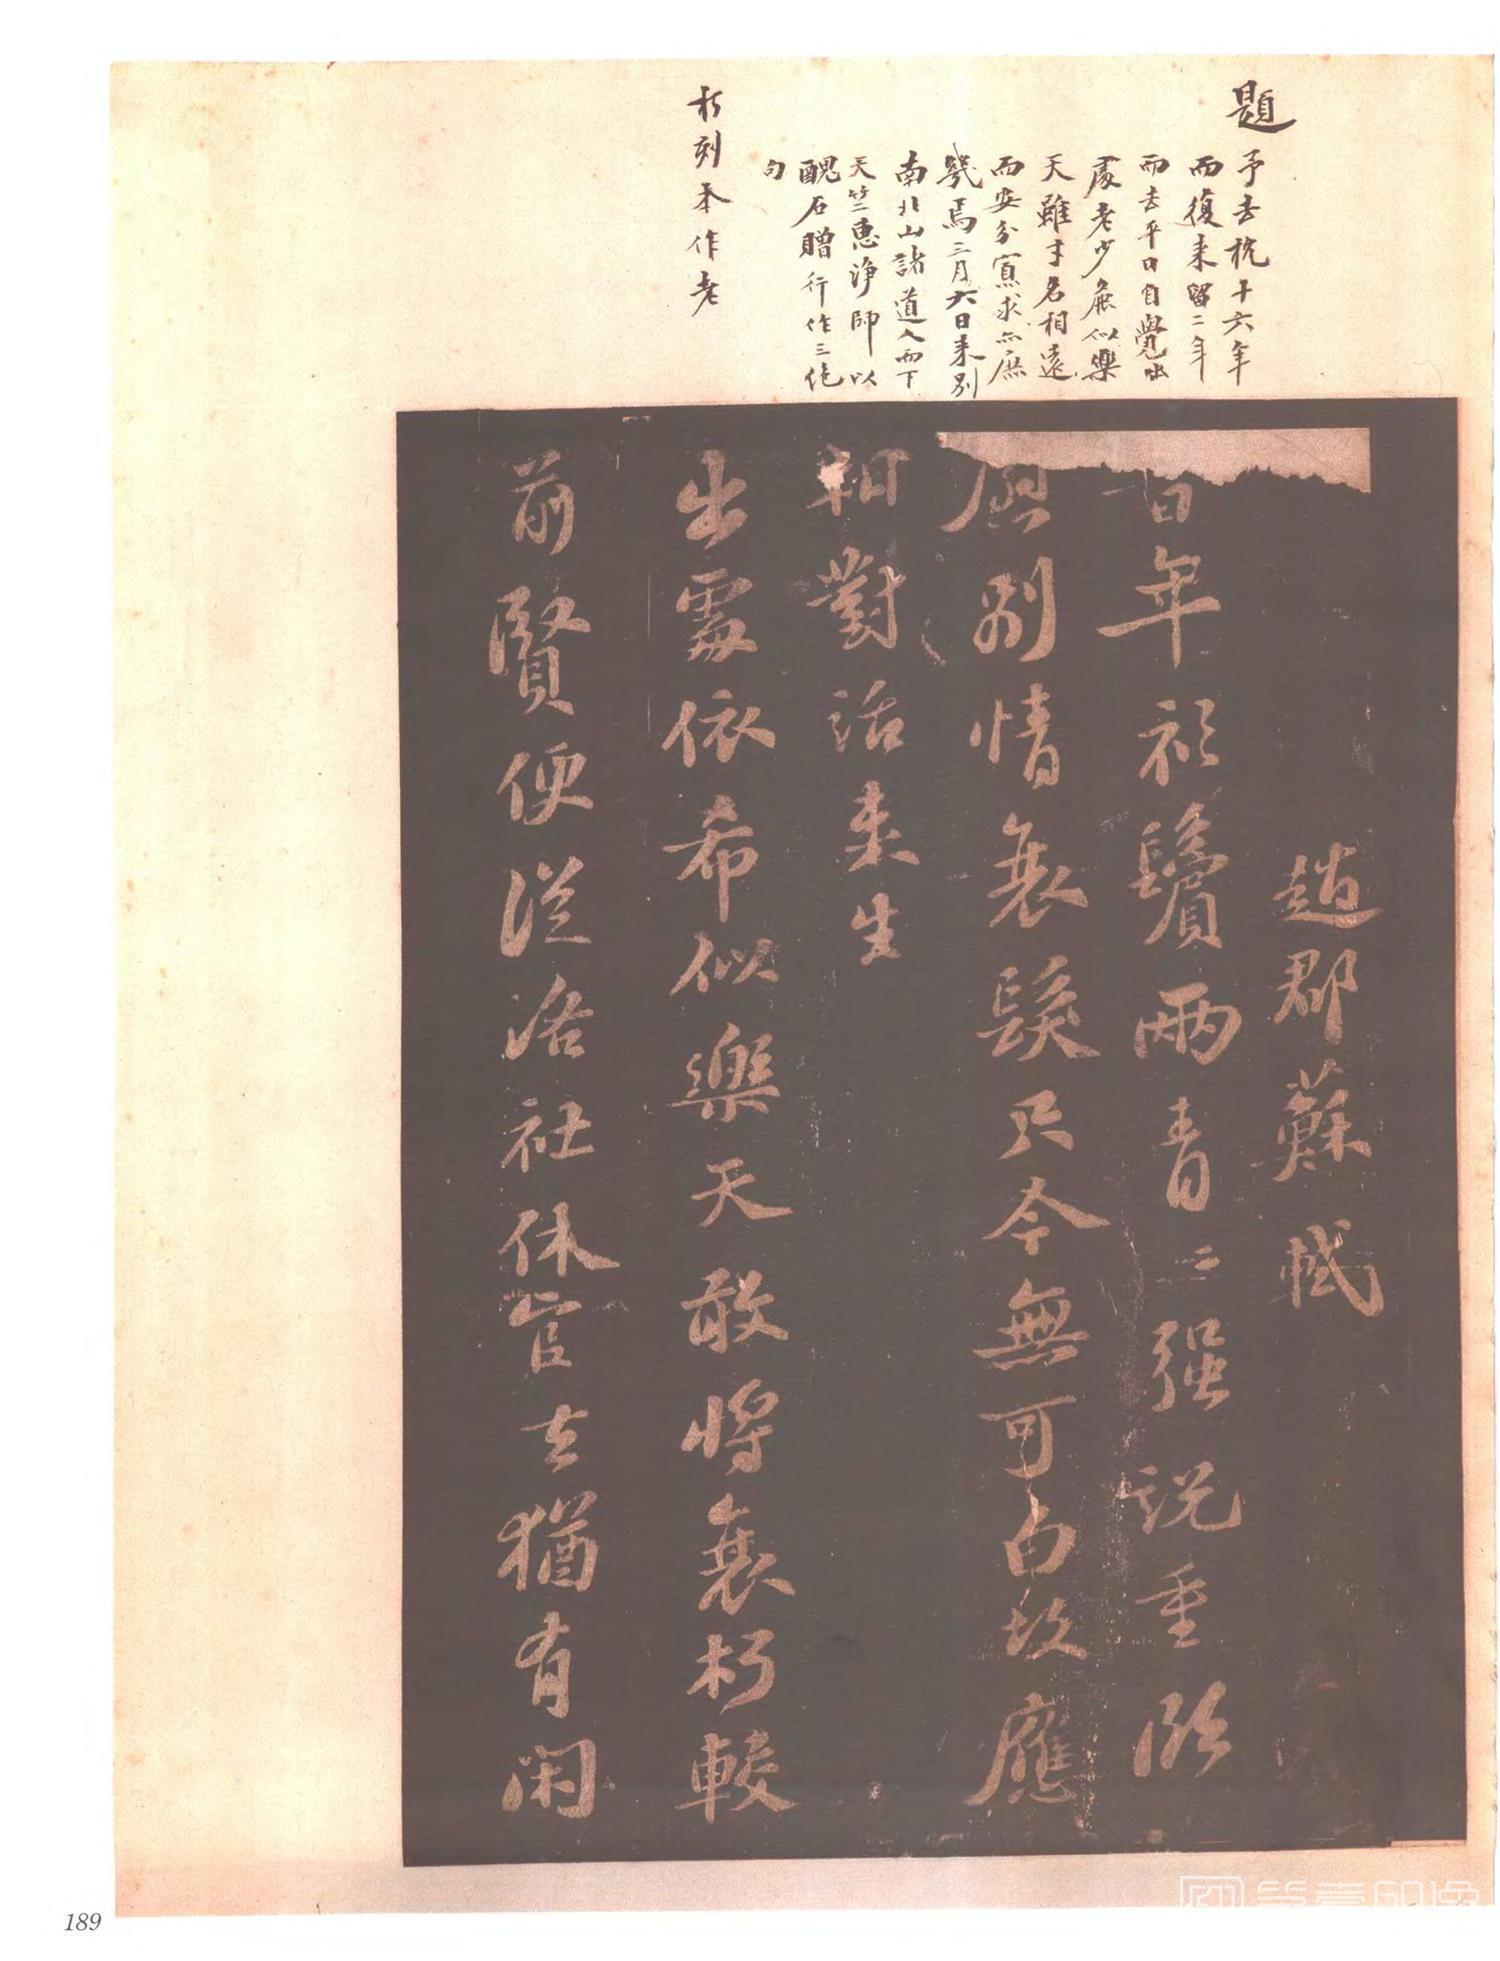 題
予去杭十六年
而復来留二年
而去平日自覺出
處老少麄似樂
天雖才名相遠
而安分寡求亦庶
幾焉三月六日来別
南北山諸道人而下
天竺惠淨師以
醜石贈行作三絶
句
朽刻本作老
趙郡蘇軾
年衫鬢兩青〻强説重臨
別情衰髮只今無可白故應
相對話来生
出處依希似樂天敢將衰朽較
前賢便従洛社休官去猶有閑
189